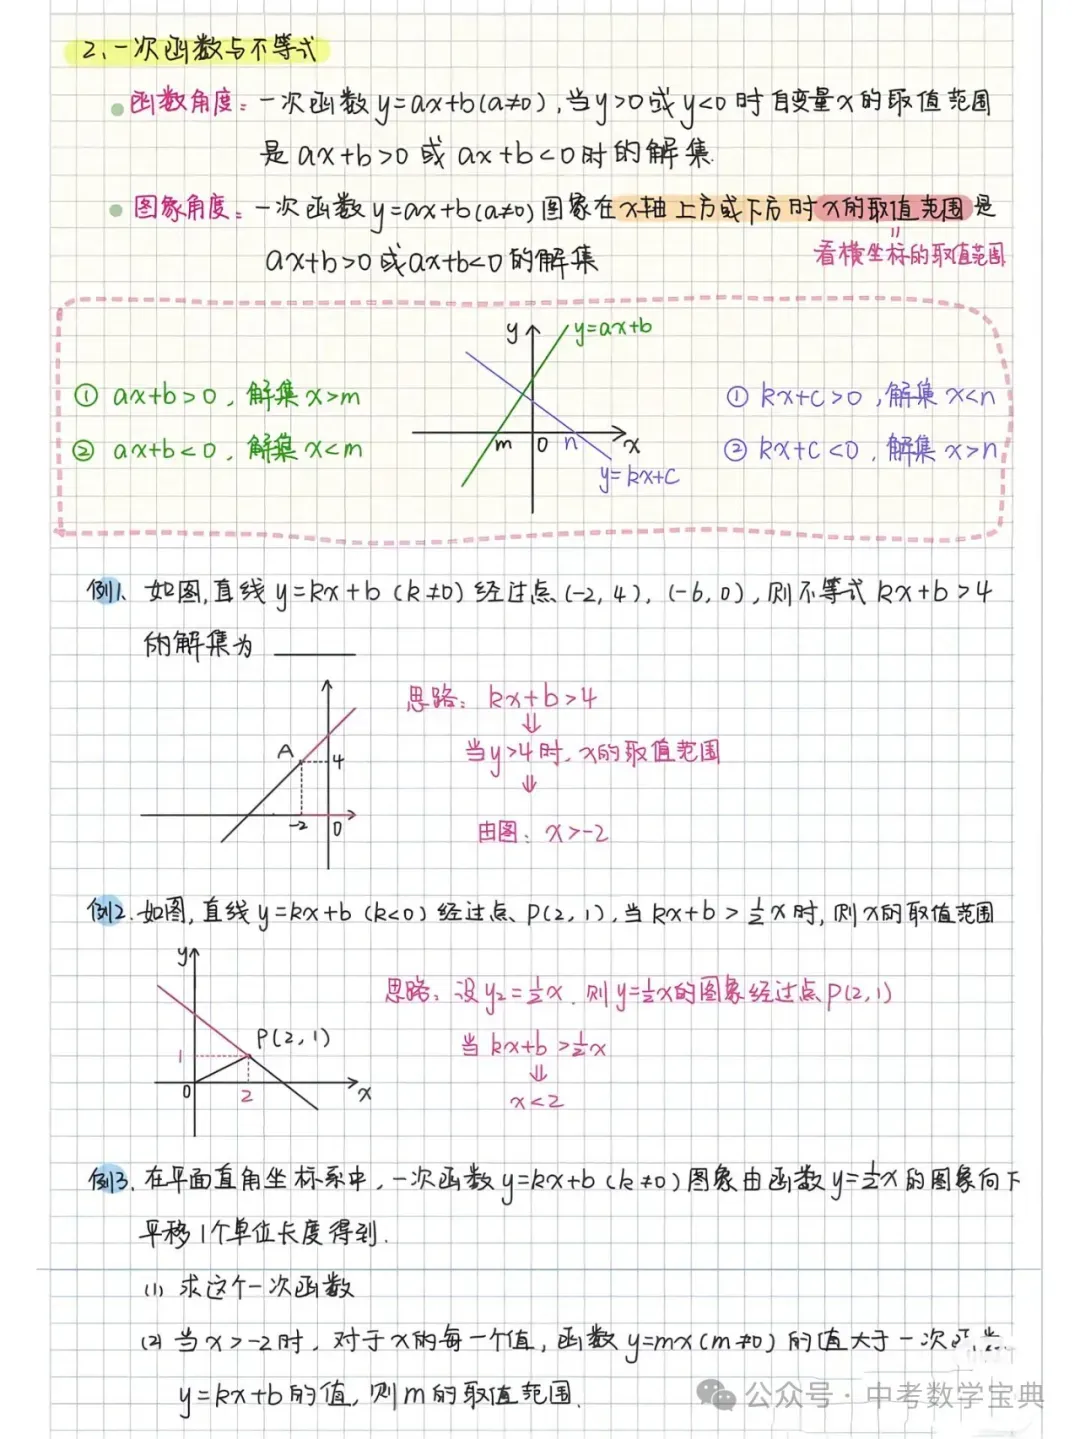 2、一次函数与不等式
函数角度：一次函数y=ax+b(a≠0)，当y>0或y<0时自变量x的取值范围
是ax+b>0或ax+b<0时的解集.
图象角度：一次函数y=ax+b(a≠0)图象在x轴上方或下方时x的取值范围是
ax+b>0或ax+b<0的解集
=
看横坐标的取值范围
y
y=ax+b
① ax+b>0，解集x>m
① kx+c>0，解集x<n
m 0 n x
② ax+b<0，解集x<m
② kx+c<0，解集x>n
y=kx+c
例1、如图，直线y=kx+b（k≠0）经过点(-2,4)，(-6,0)，则不等式kx+b>4
的解集为 ____
思路：kx+b>4
⇓
当y>4时，x的取值范围
⇓
由图：x>-2
A
4
-2 0
例2.如图，直线y=kx+b（k<0）经过点、P(2,1)，当kx+b>½x时，则x的取值范围
y
思路：设y₂=½x.则y=½x的图象经过点P(2,1)
P(2,1)
当kx+b>½x
1
⇓
0 2 x
x<2
例3.在平面直角坐标系中，一次函数y=kx+b（k≠0）图象由函数y=½x的图象向下
平移1个单位长度得到.
(1) 求这个一次函数
(2) 当x>-2时，对于x的每一个值，函数y=mx(m≠0)的值大于一次
y=kx+b的值，则m的取值范围.
公众号·中考数学宝典